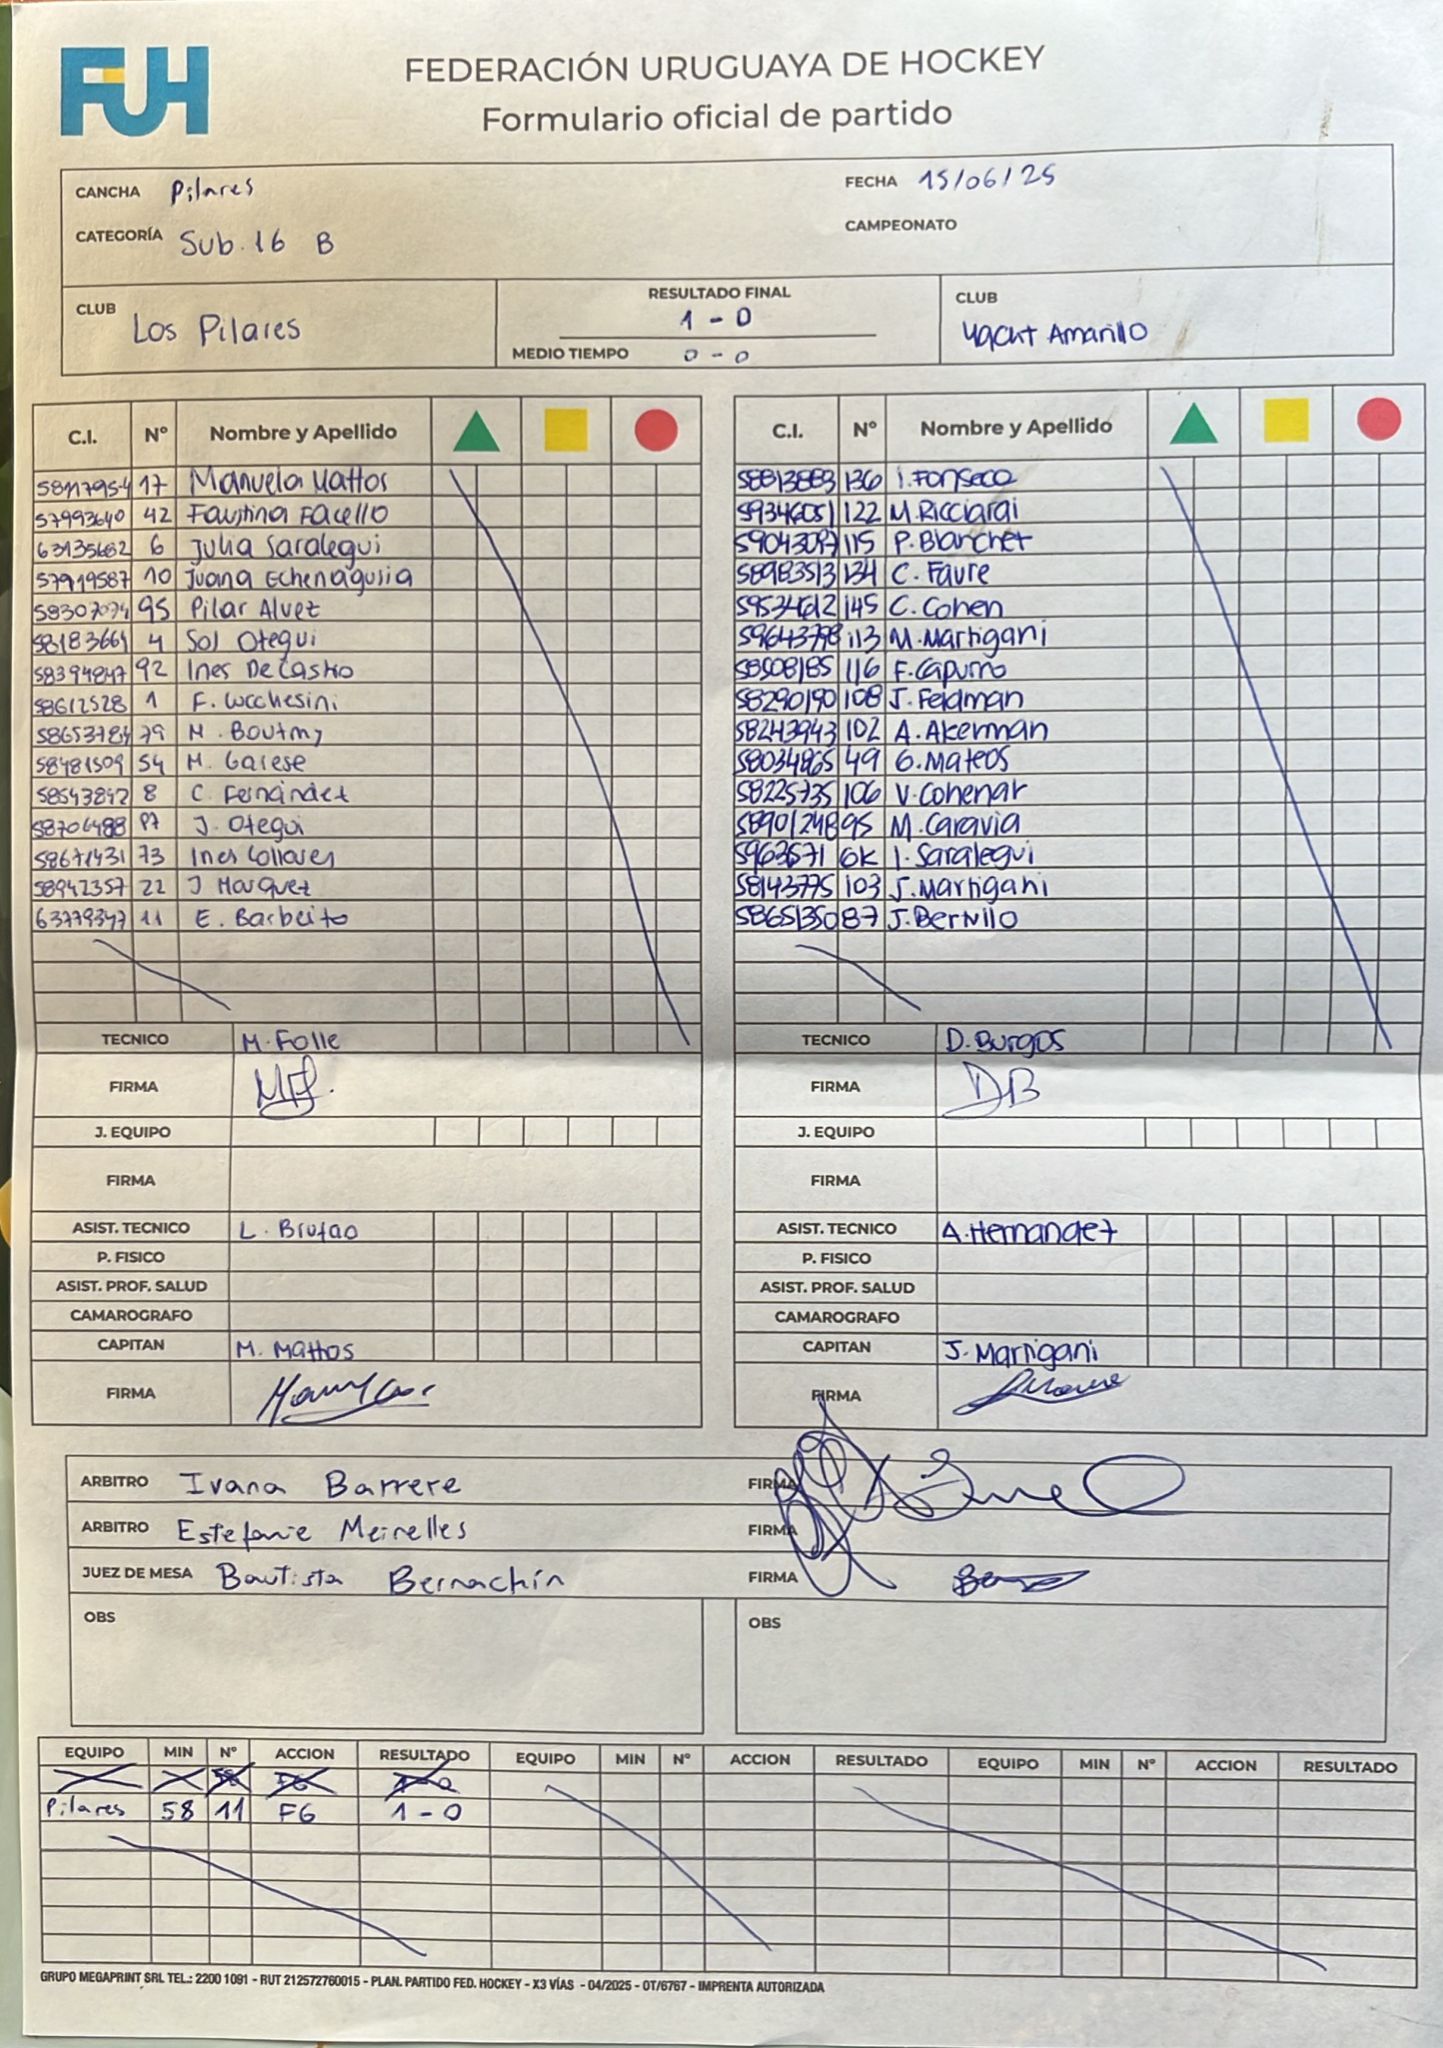 FUH
FEDERACIÓN URUGUAYA DE HOCKEY
Formulario oficial de partido
CANCHA Pilares
FECHA 15/06/25
CATEGORÍA Sub.16 B
CAMPEONATO
CLUB Los Pilares
RESULTADO FINAL 1 - 0
MEDIO TIEMPO 0 - 0
CLUB Yacht Amarillo
C.I. Nº Nombre y Apellido
5811795-4 17 Manuela Mattos
57993640 42 Faustina Facello
63135682 6 Julia Saralegui
57919587 10 Juana Echenagusia
58307074 95 Pilar Alvez
58183661 4 Sol Otegui
58394847 92 Ines De Castro
58612528 1 F. Lucchesini
58653784 79 M. Boutmy
58481509 54 M. Garese
58543842 8 C. Fernández
58706488 87 J. Otegui
58671431 73 Ines Collares
58942357 22 J Marquez
63779347 11 E. Barbeito
TECNICO M. Folle
FIRMA
J. EQUIPO
FIRMA
ASIST. TECNICO L. Brufao
P. FISICO
ASIST. PROF. SALUD
CAMAROGRAFO
CAPITAN M. Mattos
FIRMA
C.I. Nº Nombre y Apellido
58813883 136 I. Fonseca
59346051 122 M. Ricciardi
59043097 115 P. Blanchet
58983513 134 C. Favre
59534612 145 C. Cohen
59643798 113 M. Martigani
58508185 116 F. Capurro
58290190 108 J. Feldman
58243943 102 A. Akerman
58034865 49 G. Mateos
58225735 106 V. Cohenar
58901248 95 M. Caravia
5963571 6K I. Saralegui
58143775 103 J. Martigani
58651350 87 J. Bervillo
TECNICO D. Burgos
FIRMA DB
J. EQUIPO
FIRMA
ASIST. TECNICO A. Hernandez
P. FISICO
ASIST. PROF. SALUD
CAMAROGRAFO
CAPITAN J. Martigani
FIRMA
ARBITRO Ivana Barrere FIRMA
ARBITRO Estefanie Meirelles FIRMA
JUEZ DE MESA Bautista Bernachín FIRMA
OBS OBS
EQUIPO MIN Nº ACCION RESULTADO EQUIPO MIN Nº ACCION RESULTADO EQUIPO MIN Nº ACCION RESULTADO
Pilares 58 11 FG 1 - 0
GRUPO MEGAPRINT SRL TEL.: 2200 1091 - RUT 212572760015 - PLAN. PARTIDO FED. HOCKEY - X3 VÍAS - 04/2025 - OT/6767 - IMPRENTA AUTORIZADA